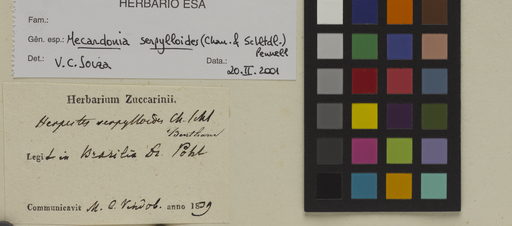 HERBARIO ESA
Fam.:
Gên. esp.: Mecardonia serpylloides (Cham. & Schltdl.)
Pennell
Det.: V.C. Souza Data.: 20.II.2001
Herbarium Zuccarinii.
Herpestes serpylloides Ch. Schl
Bentham
Legit in Brasilia Dr. Pohl
Communicavit M. C. Vindob. anno 1839